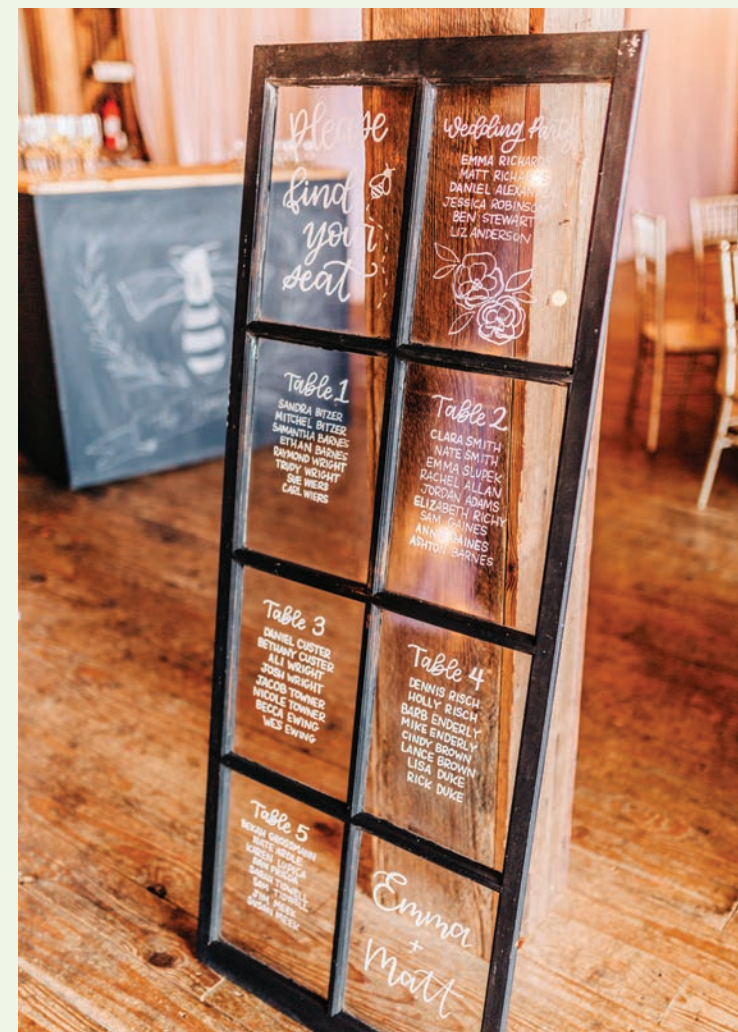 please
find
your
seat
Wedding Party
EMMA RICHARDS
MATT RICHARDS
DANIEL
JESSICA ROBINSON
BEN STEWART
LIZ ANDERSON
Table 1
SANDRA BITZER
MITCHEL BITZER
SAMANTHA BARNES
ETHAN BARNES
RAYMOND WRIGHT
TRUDY WRIGHT
SUE WIERS
CARL WIERS
Table 2
CLARA SMITH
NATE SMITH
EMMA SLUPEK
RACHEL ALLAN
JORDAN ADAMS
ELIZABETH RICHY
SAM GAINES
GAINES
ASHTON BARNES
Table 3
DANIEL CUSTER
BETHANY CUSTER
ALI WRIGHT
JOSH WRIGHT
JACOB TOWNER
NICOLE TOWNER
BECCA EWING
WES EWING
Table 4
DENNIS RISCH
HOLLY RISCH
BARB ENDERLY
MIKE ENDERLY
CINDY BROWN
LANCE BROWN
LISA DUKE
RICK DUKE
Table 5
NATE
KAREN LUPICA
SARAH TIDWELL
SAM TIDWELL
JIM MEEK
SUSAN MEEK
Emma
+
Matt